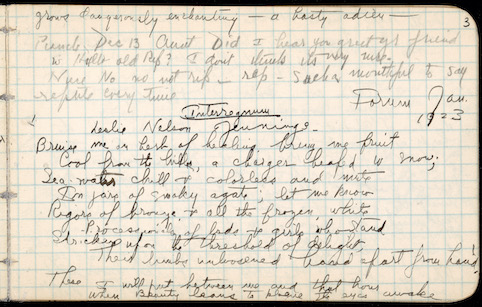 3
grows dangerously enchanting — a hasty adieu —
Dec 13 Aunt Did I hear you greet yr friend
w Hello old Rep? I dont think its very nice.
No no not rep — rep — Such a mouthful to say
reptile every time
Forum Jan.
1923
Interregnum
Leslie Nelson Jennings
Bring me an herb of healing, bring me fruit
Cool from the hills, a charger heap'd w snow;
Sea water chill & colorless and mute
In jars of smoky agate; let me know
Rigors of bronze & all the frozen white
Processionals of lads & girls who stand
Stricken upon the threshold of delight
Their limbs unloosened hand apart from hand
These I will put between me and that hour
When Beauty leans to the eyes awake